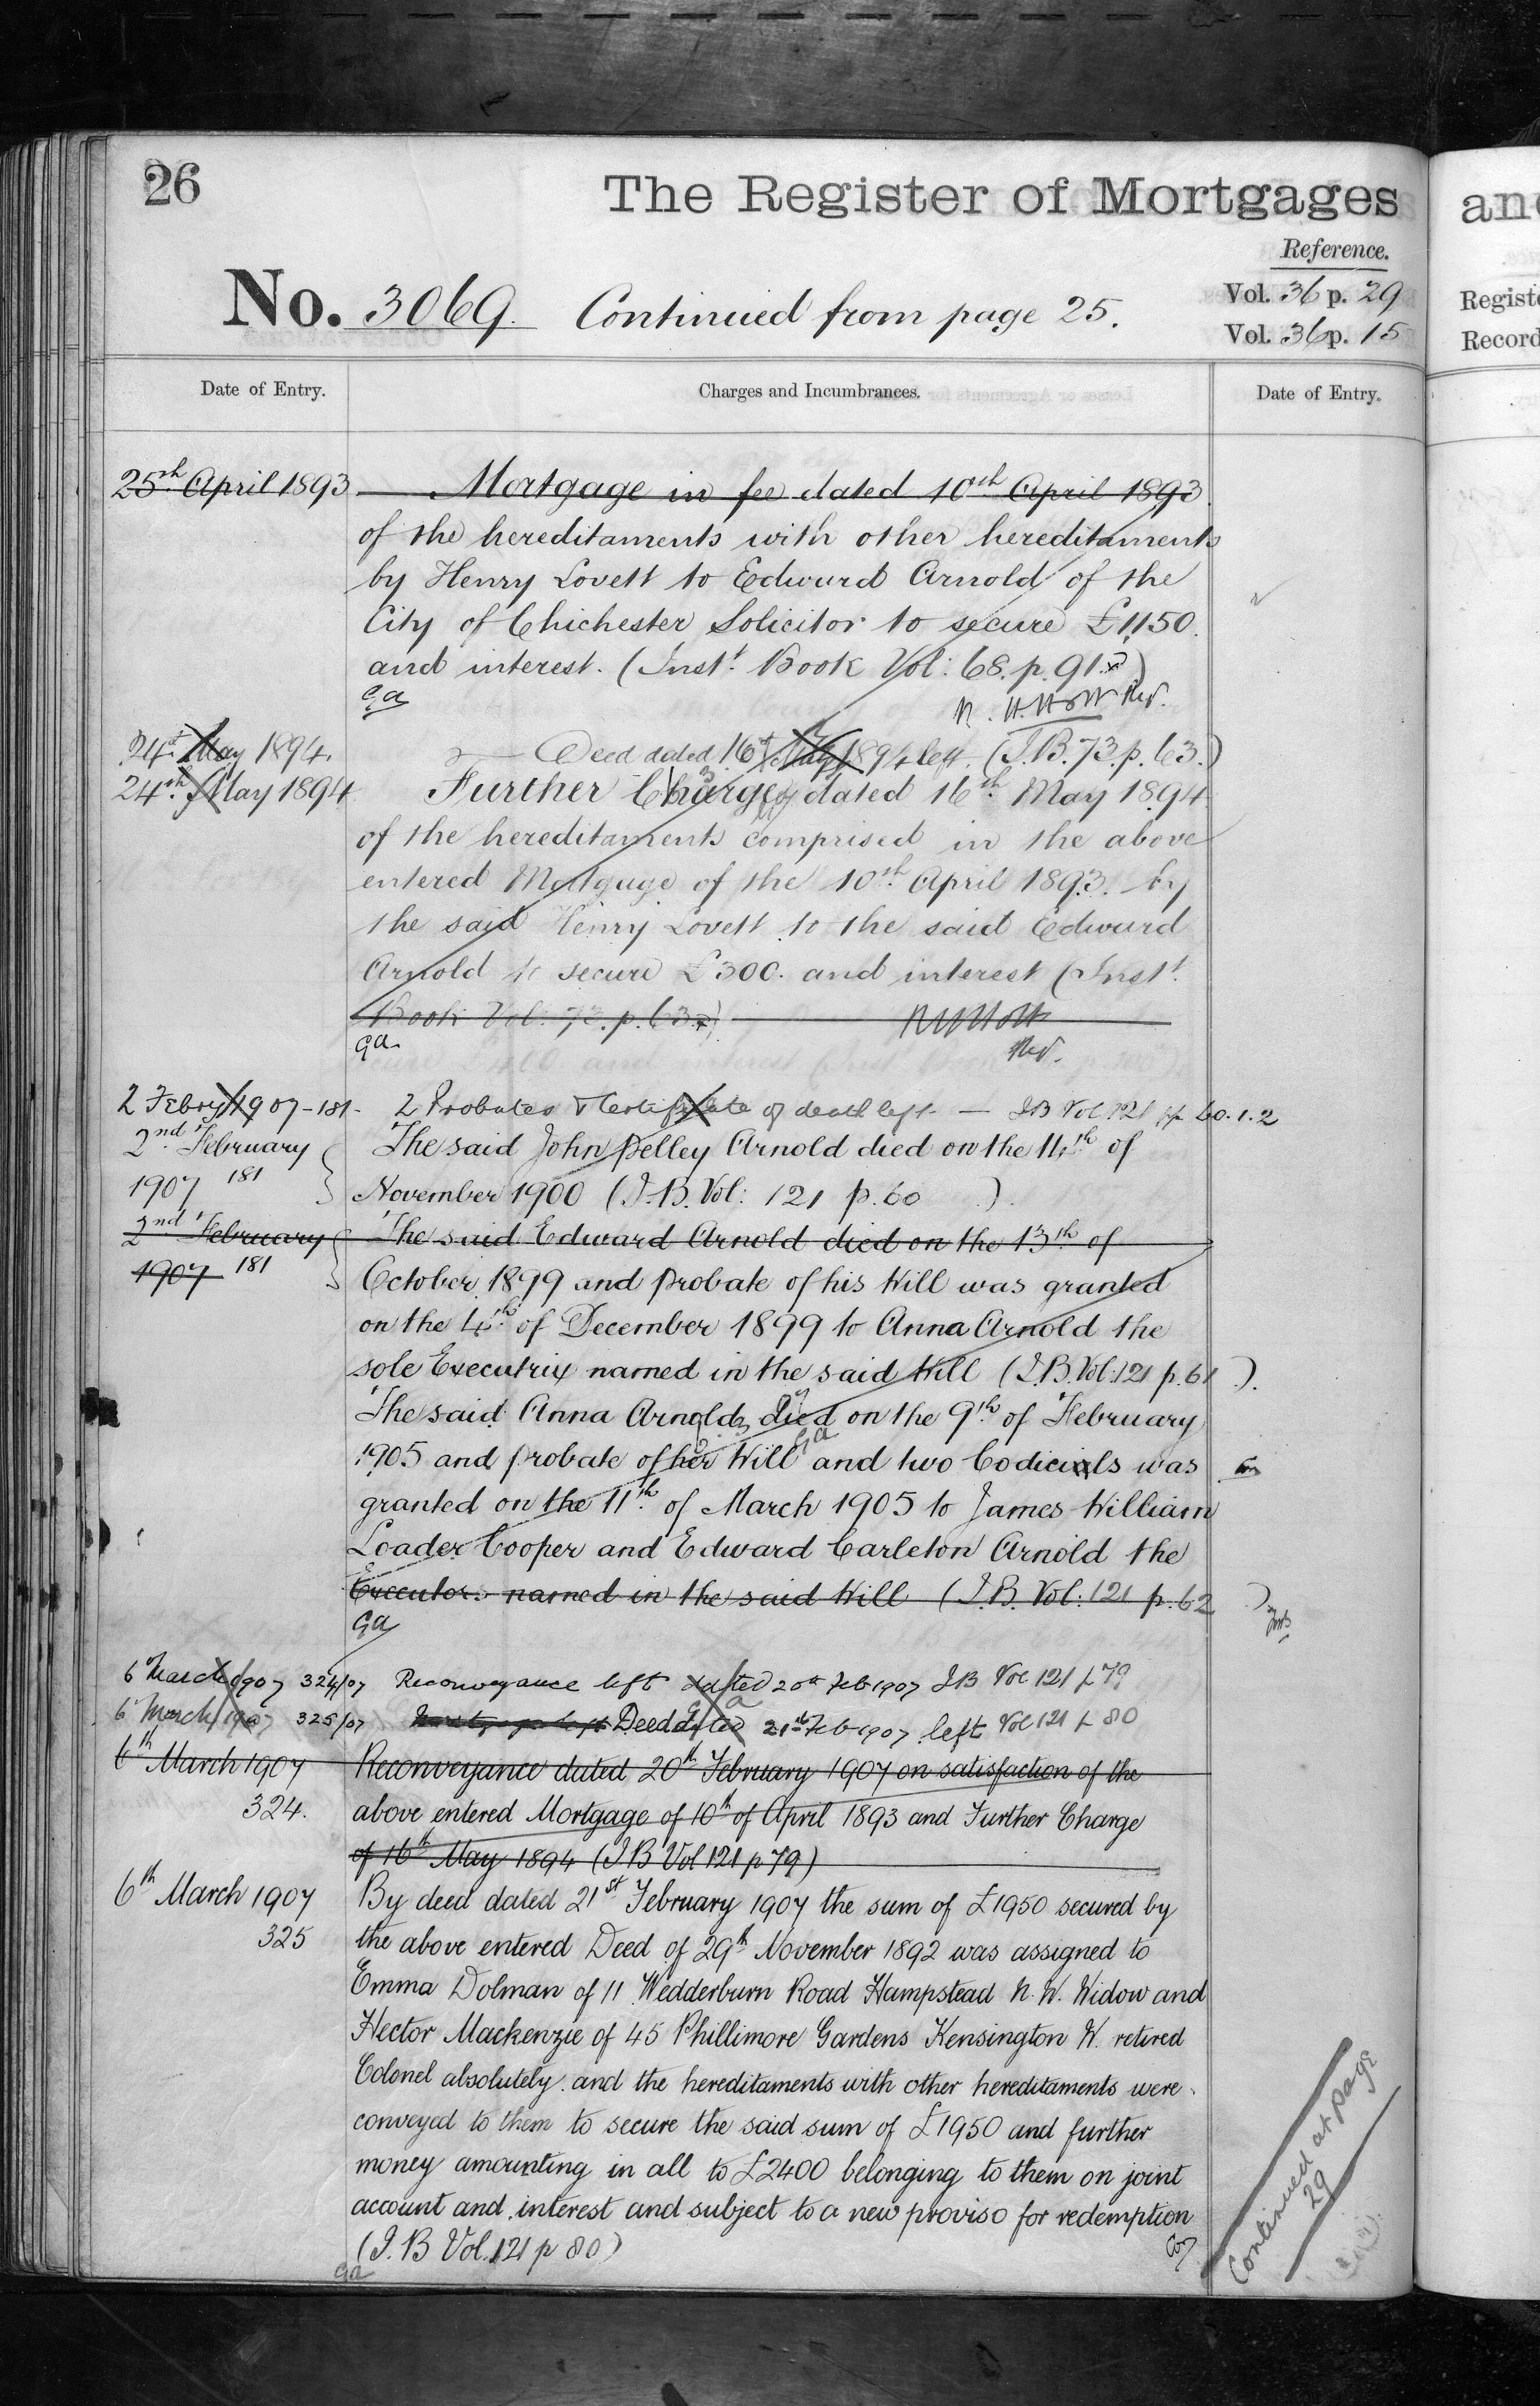 26
The Register of Mortgages
Reference.
No. 3069. Continued from page 25.
Vol. 36 p. 29
Vol. 36 p. 15
Date of Entry.
Charges and Incumbrances.
Date of Entry.
25th April 1893
Mortgage in fee dated 10th April 1893
of the hereditaments with other hereditaments
by Henry Lovett to Edward Arnold of the
City of Chichester Solicitor to secure £1150.
and interest. (Inst. Book Vol: 68. p. 91.)
Ga
24th May 1894.
Deed dated 16th May 1894 left. (I.B. 73. p. 63.)
24th May 1894
Further Charge dated 16th May 1894
of the hereditaments comprised in the above
entered Mortgage of the 10th April 1893. by
the said Henry Lovett to the said Edward
Arnold to secure £300. and interest (Inst.
Book Vol. 73. p. 63.)
Ga
2 Febry 1907 - 181 - 2 Probates & Certificate of death left — IB Vol. 121 pp 60.1.2
2nd February
1907 181
The said John Pelley Arnold died on the 11th of
November 1900 (I.B. Vol: 121 p. 60 ).
2nd February
1907 181
The said Edward Arnold died on the 13th of
October 1899 and probate of his Will was granted
on the 4th of December 1899 to Anna Arnold the
sole Executrix named in the said Will (I.B. Vol: 121 p. 61 ).
The said Anna Arnold died on the 9th of February
1905 and probate of her Will and two Codicils was
granted on the 11th of March 1905 to James William
Loader Cooper and Edward Carleton Arnold the
Executors named in the said Will (I.B. Vol: 121 p. 62 )
Ga
6 March 1907 324/07 Reconveyance left dated 20th Feb 1907 IB Vol 121 p 79
6 March 1907 325/07 Deed dated 21st Feb 1907 left Vol 121 p 80
6th March 1907
324.
Reconveyance dated 20th February 1907 on satisfaction of the
above entered Mortgage of 10th of April 1893 and Further Charge
of 16th May 1894 (I B Vol 121 p 79)
6th March 1907
325
By deed dated 21st February 1907 the sum of £1950 secured by
the above entered Deed of 29th November 1892 was assigned to
Emma Dolman of 11 Wedderburn Road Hampstead N. W. Widow and
Hector Mackenzie of 45 Phillimore Gardens Kensington W. retired
Colonel absolutely. and the hereditaments with other hereditaments were
conveyed to them to secure the said sum of £1950 and further
money amounting in all to £2400 belonging to them on joint
account and interest and subject to a new proviso for redemption
(I. B Vol. 121 p 80)
Ga
Continued at page
29
and
Registe
Record